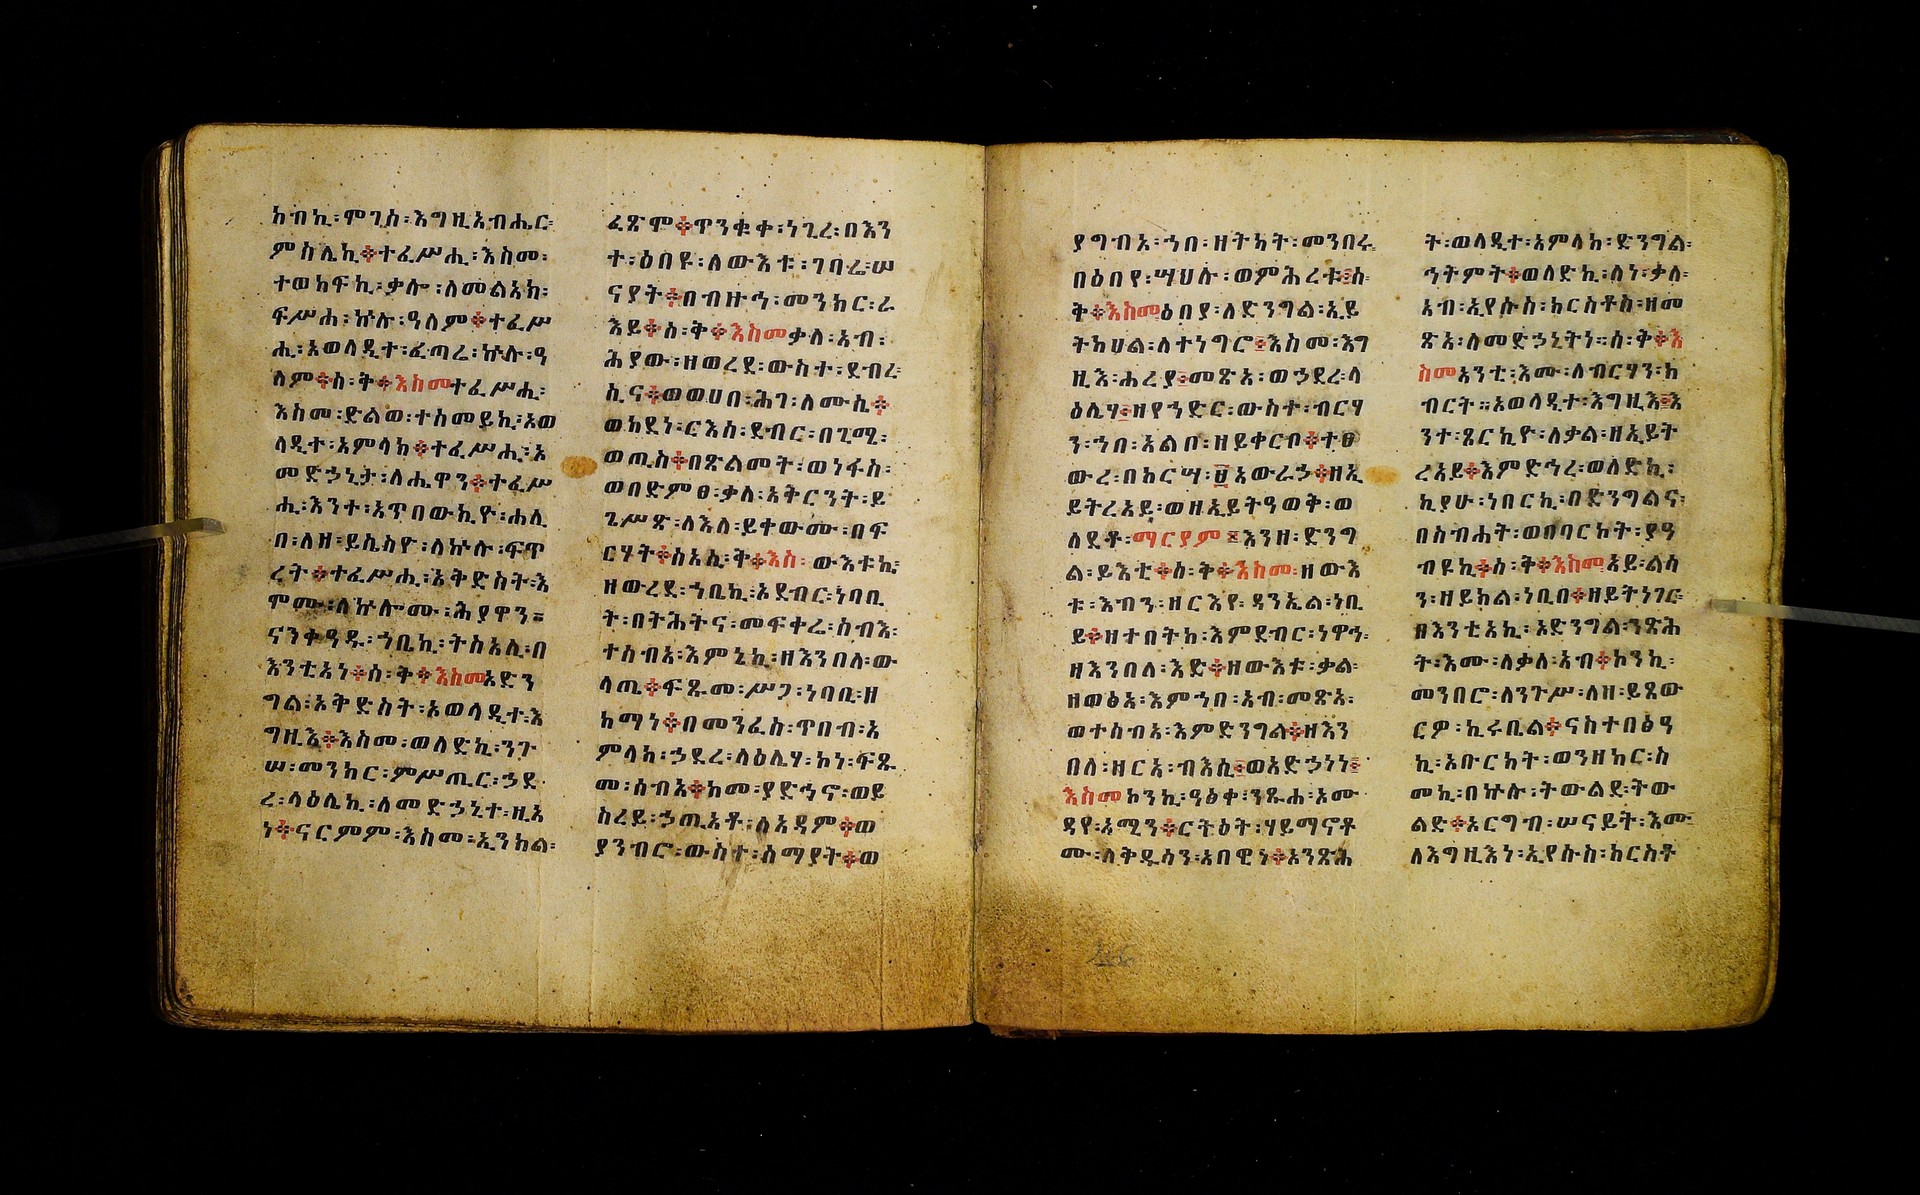 ከብኪ፡ሞገስ፡እግዚአብሔር፡
ምስሌኪ፨ተፈሥሒ፡እስመ፡
ተወከፍኪ፡ቃሎ፡ለመልአክ፡
ፍሥሐ፡ኵሉ፡ዓለም፨ተፈሥ
ሒ፡አወላዲተ፡ፈጣሬ፡ኵሉ፡ዓ
ለም፨ስ፡ቅ፨እስመተፈሥሒ፡
እስመ፡ድልወ፡ተሰመይኪ፡አወ
ላዲተ፡አምላክ፨ተፈሥሒ፡አ
መድኃኒታ፡ለሔዋን፨ተፈሥ
ሒ፡እንተ፡አጥበውኪዮ፡ሐሊ
በ፡ለዘ፡ይሴስዮ፡ለኵሉ፡ፍጥ
ረት፨ተፈሥሒ፡አቅድስት፡እ
ሞሙ፡ለኵሎሙ፡ሕያዋን፡
ናንቀዓዱ፡ኀቤኪ፡ትስአሊ፡በ
እንቲአነ፨ስ፡ቅ፨እስመአድን
ግል፡አቅድስት፡አወላዲተ፡እ
ግዚእ፨እስመ፡ወለድኪ፡ንጉ
ሠ፡መንክር፡ምሥጢር፡ኃደ
ረ፡ላዕሌኪ፡ለመድኃኒተ፡ዚአ
ነ፨ናርምም፡እስመ፡ኢንክል፡
ፈጽሞ፨ጥንቁቀ፡ነጊረ፡በእን
ተ፡ዕበዩ፡ለውእቱ፡ገባሬ፡ሠ
ናያት፨በብዙኅ፡መንክር፡ራ
እይ፨ስ፡ቅ፨እስመቃለ፡አብ፡
ሕያው፡ዘወረደ፡ውስተ፡ደብረ፡
ሲና፨ወወሀበ፡ሕገ፡ለሙሴ፨
ወከደነ፡ርእሰ፡ደብር፡በጊሜ፡
ወጢስ፨በጽልመት፡ወነፋስ፡
ወበድምፀ፡ቃለ፡አቅርንት፡ይ
ጌሥጽ፡ለእለ፡ይቀውሙ፡በፍ
ርሃት፨ሰአሊ፡ቅ፨እስ፡ውእቱኬ፡
ዘወረደ፡ኀቤኪ፡አደብር፡ነባቢ
ት፡በትሕትና፡መፍቀሬ፡ሰብእ፡
ተሰብአ፡እምኔኪ፡ዘእንበለ፡ው
ላጤ፨ፍጹመ፡ሥጋ፡ነባቢ፡ዘ
ከማነ፨በመንፈሰ፡ጥበብ፡አ
ምላክ፡ኃደረ፡ላዕሌሃ፡ኮነ፡ፍጹ
መ፡ሰብአ፨ከመ፡ያድኅኖ፡ወይ
ስረይ፡ኃጢአቶ፡ለአዳም፨ወ
ያንብሮ፡ውስተ፡ሰማያት፨ወ
ያግብአ፡ኀበ፡ዘትካት፡መንበሩ
በዕበየ፡ሣህሉ፡ወምሕረቱ፨ስ፡
ቅ፨እስመዕበያ፡ለድንግል፡ኢይ
ትከሀል፡ለተነግሮ፨እስመ፡እግ
ዚእ፡ሐረያ፨መጽአ፡ወኃደረ፡ላ
ዕሌሃ፨ዘየኀድር፡ውስተ፡ብርሃ
ን፡ኀበ፡አልቦ፡ዘይቀርቦ፨ተፀ
ውረ፡በከርሣ፡፱አውራኃ፨ዘኢ
ይትረአይ፡ወዘኢይትዓወቅ፡ወ
ለደቶ፡ማርያም፡እንዘ፡ድንግ
ል፡ይእቲ፨ስ፡ቅ፨እስመ፡ዘውእ
ቱ፡እብን፡ዘርእየ፡ዳንኤል፡ነቢ
ይ፨ዘተበትከ፡እምደብር፡ነዋኅ፡
ዘእንበለ፡እድ፨ዘውእቱ፡ቃል፡
ዘወፅአ፡እምኀበ፡አብ፡መጽአ፡
ወተሰብአ፡እምድንግል፨ዘእን
በለ፡ዘርአ፡ብእሲ፨ወአድኃነነ፨
እስመኮንኪ፡ዓፅቀ፡ንጹሐ፡አሙ
ዳየ፡አሚን፨ርትዕት፡ሃይማኖቶ
ሙ፡ለቅዱሳን፡አበዊነ፨አንጽሕ
ት፡ወላዲተ፡አምላክ፡ድንግል፡
ኅትምት፨ወለድኪ፡ለነ፡ቃለ፡
አብ፡ኢየሱስ፡ክርስቶስ፡ዘመ
ጽአ፡ለመድኃኒትነ፡፡ስ፡ቅ፨እ
ስመአንቲ፡እሙ፡ለብርሃን፡ክ
ብርት፡፡አወላዲተ፡እግዚእ፨እ
ንተ፡ጾርኪዮ፡ለቃል፡ዘኢይት
ረአይ፨እምድኅረ፡ወለድኪ፡
ኪያሁ፡ነበርኪ፡በድንግልና፡
በስብሐት፡ወበባርኮት፡ያዓ
ብዩኪ፨ስ፡ቅ፨እስመአይ፡ልሳ
ን፡ዘይክል፡ነቢበ፨ዘይትነገር፡
ዘእንቲአኪ፡አድንግል፡ንጽሕ
ት፡እሙ፡ለቃለ፡አብ፨ኮንኪ፡
መንበሮ፡ለንጉሥ፡ለዘ፡ይጸው
ርዎ፡ኪሩቤል፨ናስተበፅዓ
ኪ፡አቡርክት፡ወንዘክር፡ስ
መኪ፡በኵሉ፡ትውልደ፡ትው
ልድ፨አርግብ፡ሠናይት፡እሙ፡
ለእግዚእነ፡ኢየሱስ፡ክርስቶ